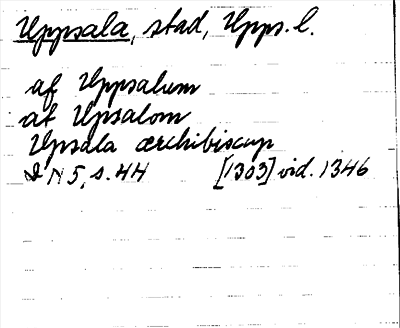 Uppsala, stad, Upps. l.
af Uppsalum
at Upsalom
Upsala ærchibiscup
DN 5, s. 44 [1303] vid. 1346